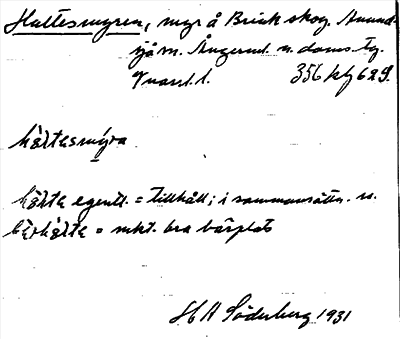 Hattesmyren, myr å Brick skog. Anund-
sjö sn. Ångerml. n. doms. tg.
356 kfg 629.
håttesmýra
håtta egentl. = tillhåll; i sammansättn. ss.
bärhåtta = mkt. bra bärplats
H A Söderberg 1931